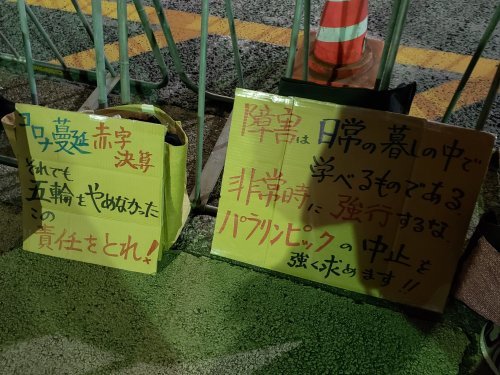 コロナ蔓延赤字
決算
それでも
五輪をやめなかった
この
責任をとれ!
障害は日常の暮しの中で
学べるものである。
非常時に強行するな。
パラリンピックの中止を
強く求めます!!